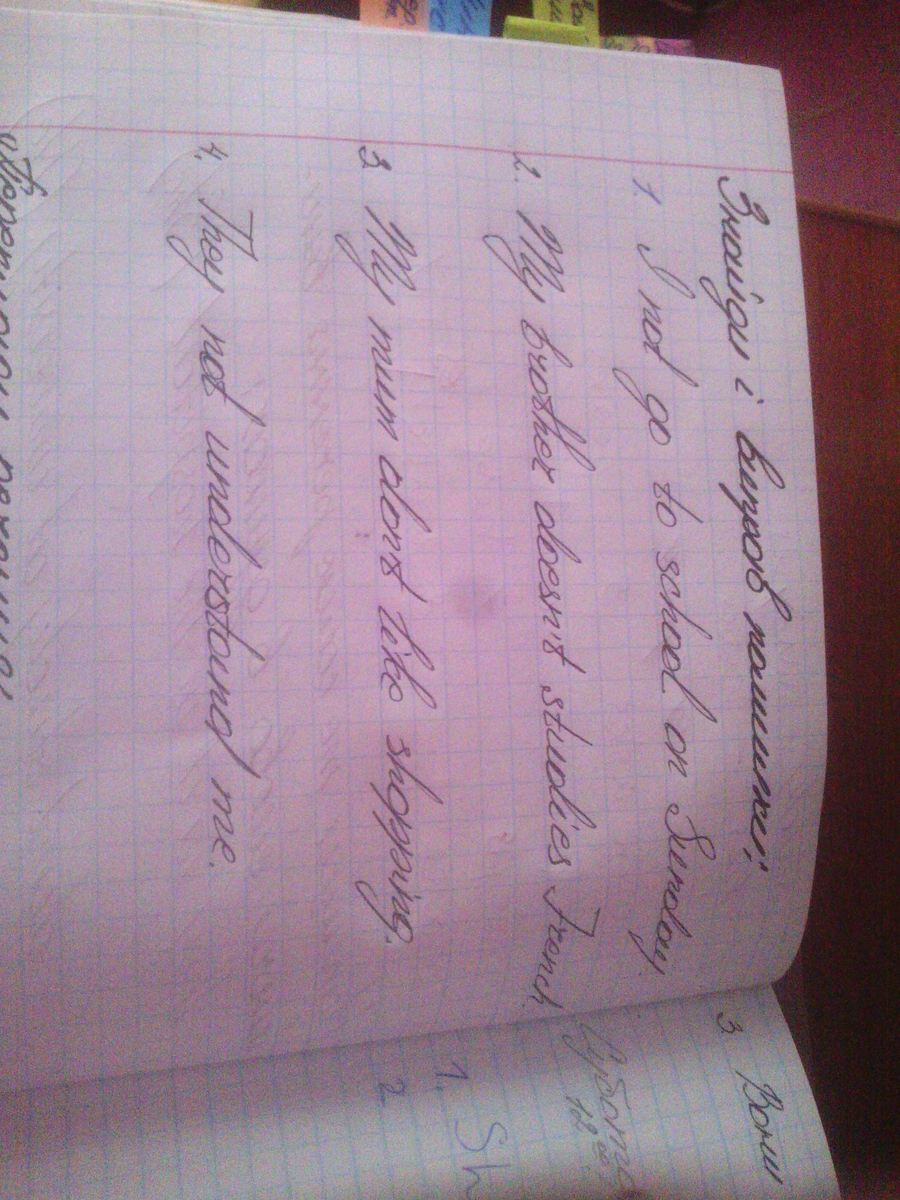 Знайди і виправ помилки:
1. I not go to school on Sunday.
2. My brother doesn't studies French.
3. My mum don't like shopping.
4. They not understand me.
3. Вони
Субота
1. Sh
2